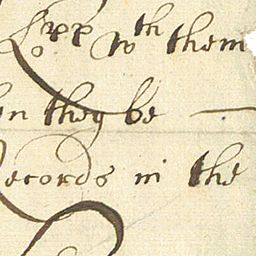 wth them
en they be —
Records in the